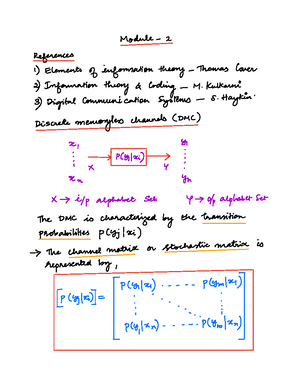 Module - 2
References
1) Elements of information theory - Thomas Cover
2) Information theory & Coding - M. Kulkarni
3) Digital Communication Systems - S. Haykin
Discrete memoryless channels (DMC)
x₁ y₁
P(yj|xi)
X Y
xn yn
X → i/p alphabet Set Y → o/p alphabet Set
The DMC is characterized by the transition
Probabilities P(yj|xi)
→ The channel matrix or stochastic matrix is
represented by,
P(y₁|x₁) P(ym|x₁)
[P(yj|xi)] =
P(y₁|xn) P(ym|xn)